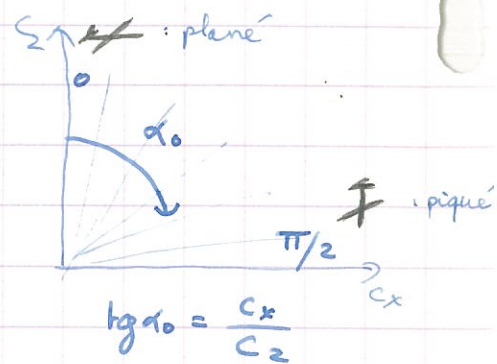 Cz : plané
0
α₀
: piqué
π/2
Cx
tg α₀ = Cx / Cz